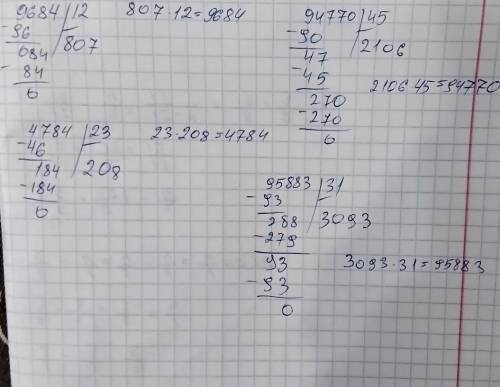 9684 | 12
-96 | 807
084
-84
0
807·12=9684
94770 | 45
-90 | 2106
47
-45
270
-270
0
2106 45=94770
4784 | 23
-46 | 208
184
-184
0
23·208=4784
95883 | 31
-93 | 3093
288
-279
93
-93
0
3093·31=95883